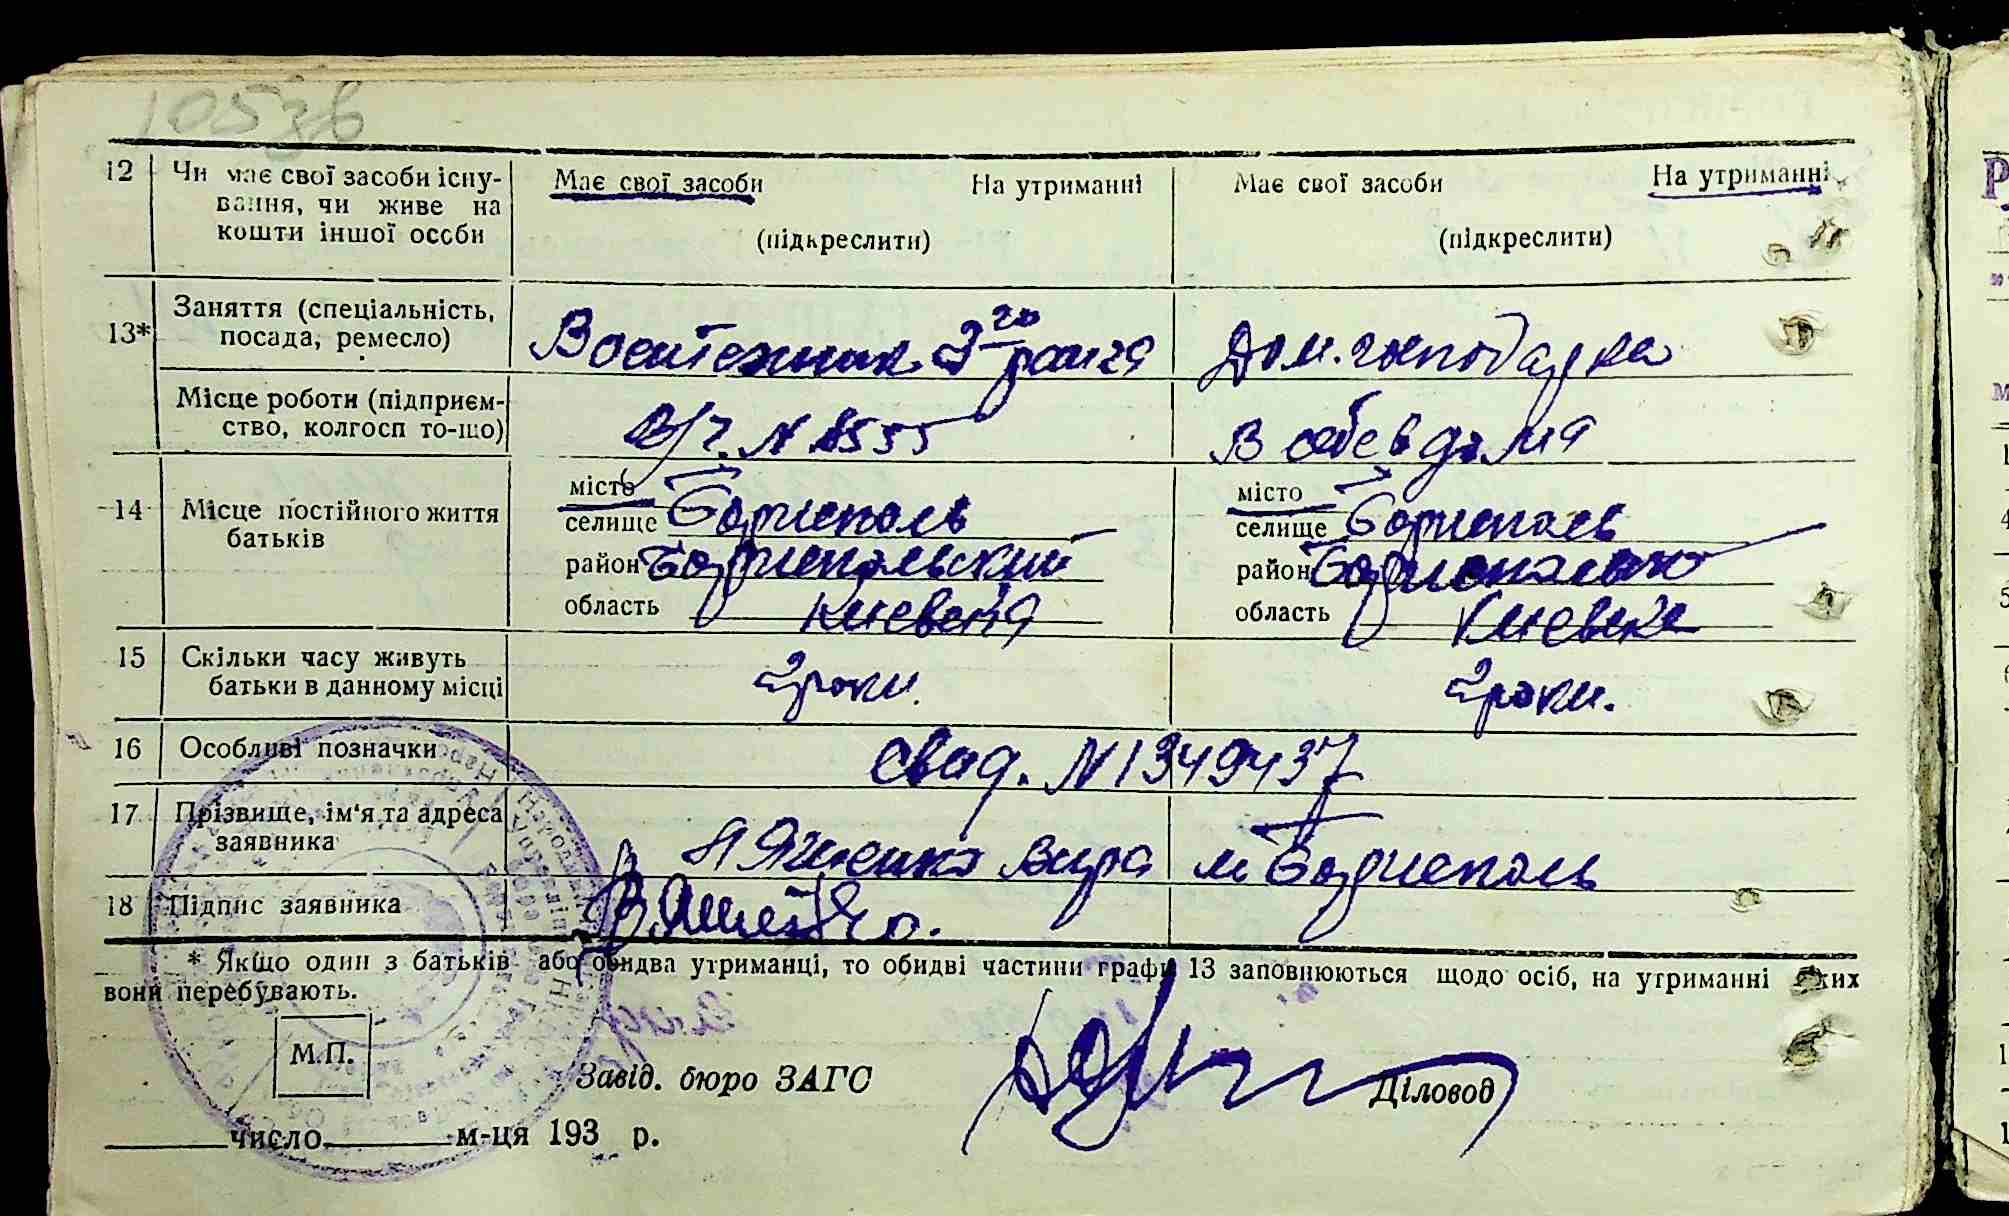 105зв
12 Чи має свої засоби існу- Має свої засоби На утриманні Має свої засоби На утриманні
вання, чи живе на
кошти іншої особи (підкреслити) (підкреслити)
13* Заняття (спеціальність, посада, ремесло) Воентехник 3го ранга Дом. господарка
Місце роботи (підприєм-
ство, колгосп то-що) В/ч. N 8555 В себе в дома
14 Місце постійного життя батьків
місто місто
селище Борисполь селище Борисполь
район Бориспольский район
область Киевская область Киевск
15 Скільки часу живуть
батьки в данному місці 2 роки. 2 роки.
16 Особливі позначки Свид. N 1349437
17 Прізвище, ім'я та адреса
заявника Яценко Вера м Борисполь
18 Підпис заявника
* Якщо один з батьків або обидва утриманці, то обидві частини графи 13 заповнюються щодо осіб, на утриманні яких
вони перебувають.
М.П.
Завід. бюро ЗАГС Діловод
число м-ця 193 р.